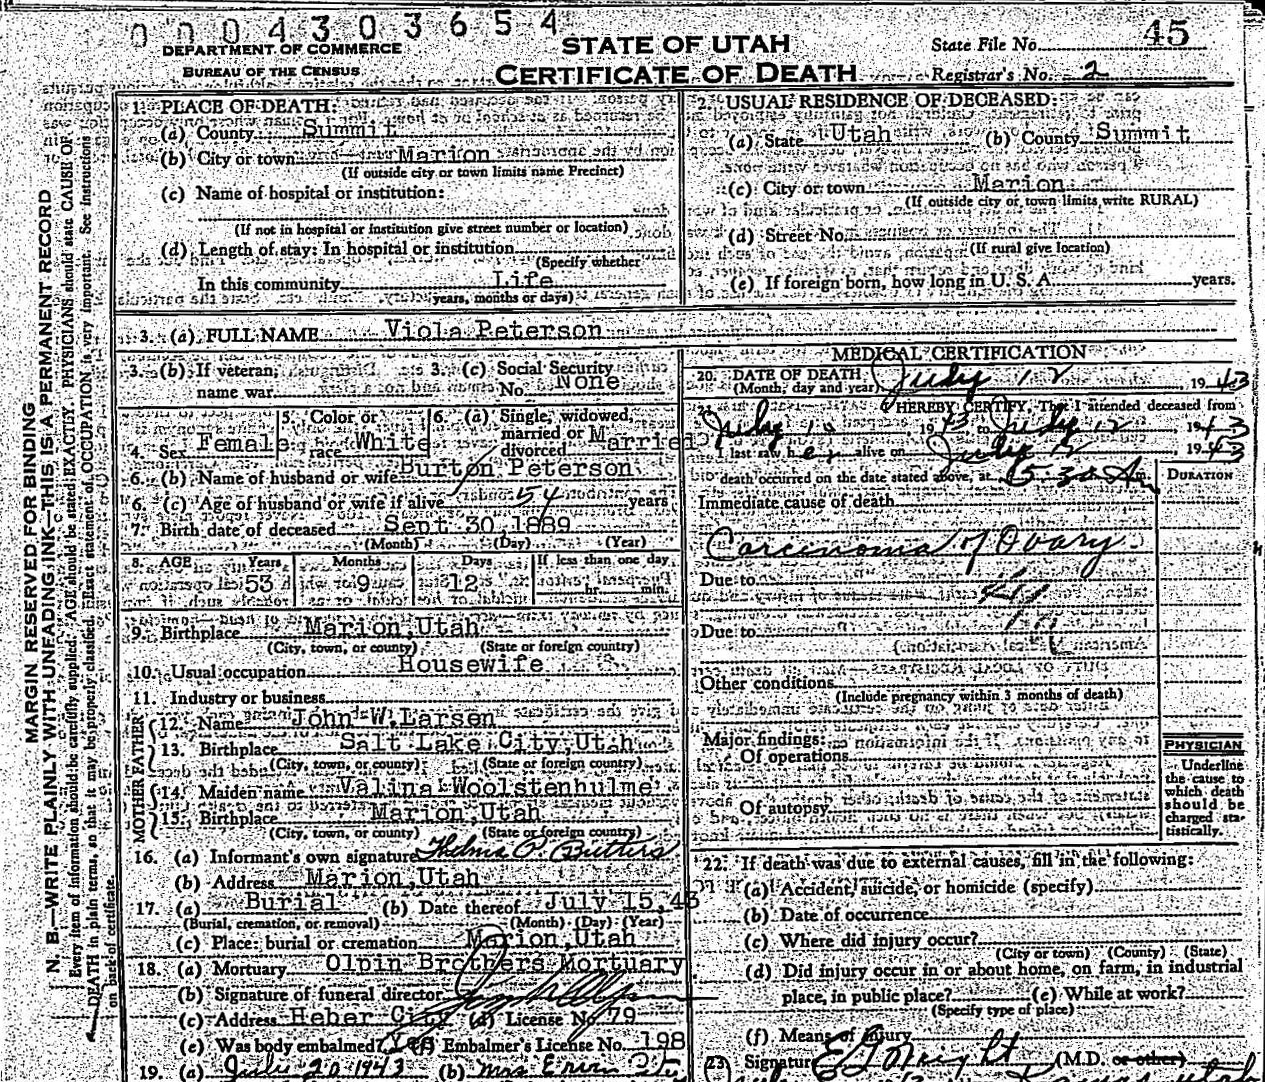 0004303654
DEPARTMENT OF COMMERCE
BUREAU OF THE CENSUS
STATE OF UTAH
CERTIFICATE OF DEATH
State File No. 45
Registrar's No. 2
MARGIN RESERVED FOR BINDING
N. B.—WRITE PLAINLY WITH UNFADING INK—THIS IS A PERMANENT RECORD
Every item of information should be carefully supplied. AGE should be stated EXACTLY. PHYSICIANS should state CAUSE OF
DEATH in plain terms, so that it may be properly classified. Exact statement of OCCUPATION is very important. See instructions
on back of certificate.
1. PLACE OF DEATH:
(a) County Summit
(b) City or town Marion
(If outside city or town limits name Precinct)
(c) Name of hospital or institution:
(If not in hospital or institution give street number or location)
(d) Length of stay: In hospital or institution
(Specify whether
In this community Life
years, months or days)
2. USUAL RESIDENCE OF DECEASED:
(a) State Utah (b) County Summit
(c) City or town Marion
(If outside city or town limits write RURAL)
(d) Street No.
(If rural give location)
(e) If foreign born, how long in U. S. A. years.
3. (a) FULL NAME Viola Peterson
3. (b) If veteran, name war
3. (c) Social Security No. None
4. Sex Female
5. Color or race White
6. (a) Single, widowed, married or divorced Married
6. (b) Name of husband or wife Burton Peterson
6. (c) Age of husband or wife if alive 54 years
7. Birth date of deceased Sept 30 1889
(Month) (Day) (Year)
8. AGE Years Months Days If less than one day
53 9 12 hr. min.
9. Birthplace Marion, Utah
(City, town, or county) (State or foreign country)
10. Usual occupation Housewife
11. Industry or business
FATHER
12. Name John W. Larsen
13. Birthplace Salt Lake City, Utah
(City, town, or county) (State or foreign country)
MOTHER
14. Maiden name Valina Woolstenhulme
15. Birthplace Marion, Utah
(City, town, or county) (State or foreign country)
16. (a) Informant's own signature Thelma P. Butters
(b) Address Marion, Utah
17. (a) Burial (b) Date thereof July 15, 43
(Burial, cremation, or removal) (Month) (Day) (Year)
(c) Place: burial or cremation Marion, Utah
18. (a) Mortuary Olpin Brothers Mortuary
(b) Signature of funeral director
(c) Address Heber City (d) License No 79
(e) Was body embalmed? Yes (f) Embalmer's License No. 198
19. (a) July 20 1943 (b) Mrs.
MEDICAL CERTIFICATION
20. DATE OF DEATH July 12 1943
(Month, day and year)
21. I HEREBY CERTIFY, That I attended deceased from
July 12 1943 to July 12 1943
I last saw her alive on July 12, 1943
death occurred on the date stated above, at 5:30 A m.
DURATION
Immediate cause of death
Carcinoma of Ovary
Due to
Due to
Other conditions
(Include pregnancy within 3 months of death)
Major findings:
Of operations
Of autopsy
PHYSICIAN
Underline
the cause to
which death
should be
charged sta-
tistically.
22. If death was due to external causes, fill in the following:
(a) Accident, suicide, or homicide (specify)
(b) Date of occurrence
(c) Where did injury occur?
(City or town) (County) (State)
(d) Did injury occur in or about home, on farm, in industrial
place, in public place? (e) While at work?
(Specify type of place)
(f) Means of Injury
23. Signature (M.D. or other)